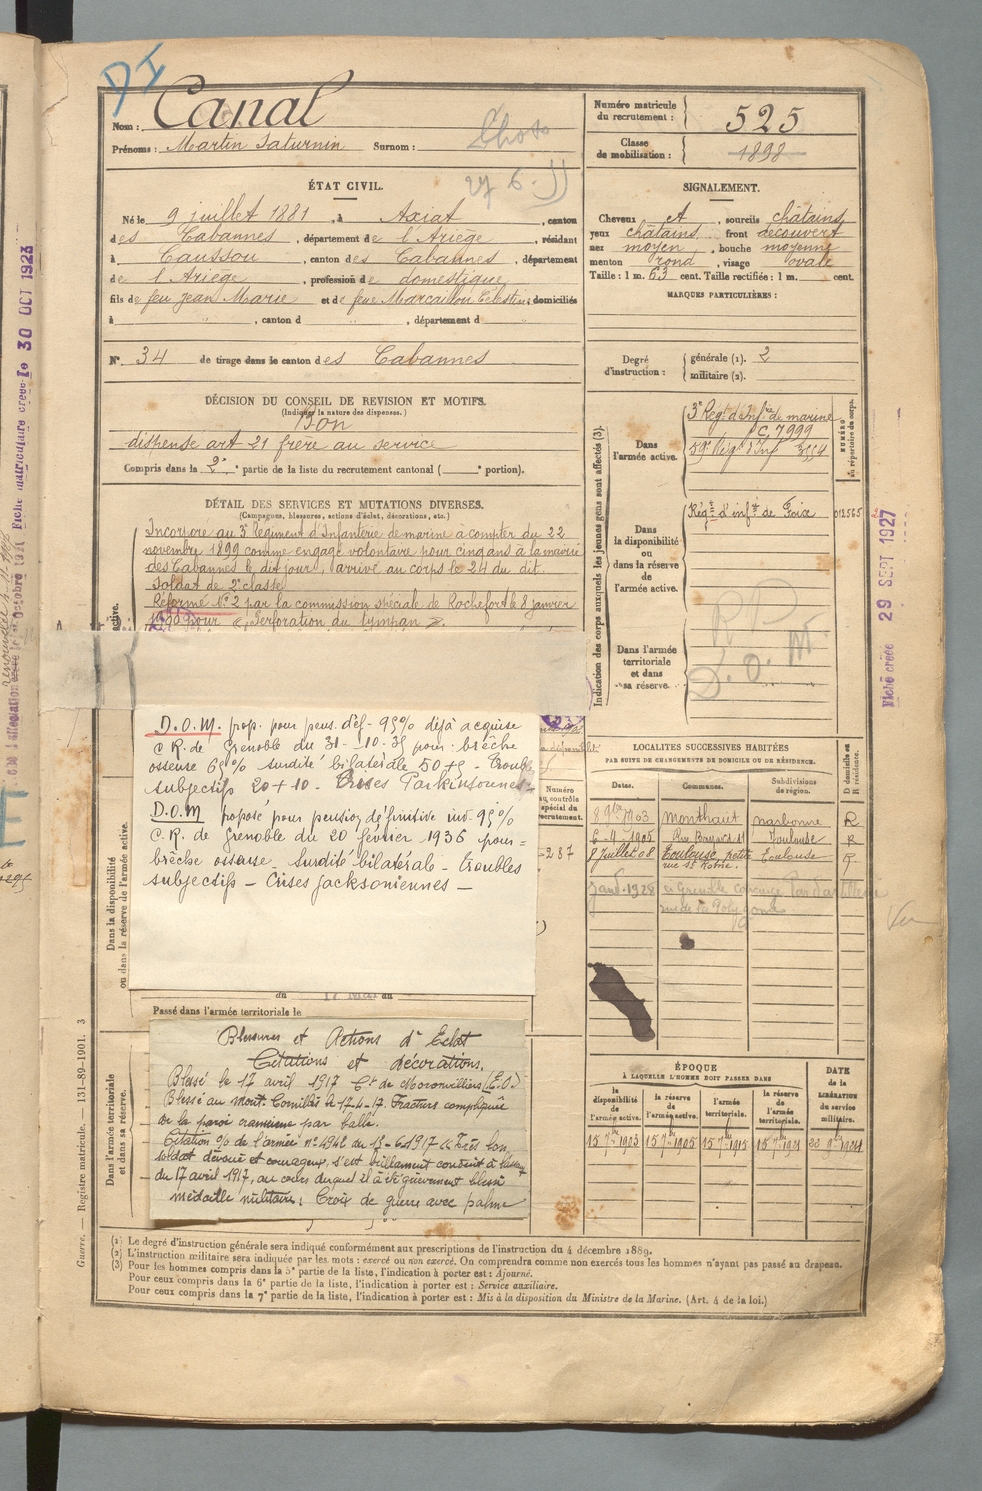 DI
Nom : Canal
Prénoms : Martin Saturnin Surnom :
Photo
Numéro matricule du recrutement : 525
Classe de mobilisation : 1898
ÉTAT CIVIL.
Né le 9 juillet 1881, à Axiat, canton
des Cabannes, département de l'Ariège, résidant
à Caussou, canton des Cabannes, département
de l'Ariège, profession de domestique,
fils de feu Jean Marie et de feue Marcaillou Célestine domiciliés
à " , canton d " , département d "
N° 34 de tirage dans le canton des Cabannes
SIGNALEMENT.
Cheveux et, sourcils châtains
yeux châtains, front découvert
nez moyen, bouche moyenne
menton rond, visage ovale
Taille : 1 m. 63 cent. Taille rectifiée : 1 m. cent.
MARQUES PARTICULIÈRES :
Degré d'instruction : générale (1). 2
militaire (2).
DÉCISION DU CONSEIL DE REVISION ET MOTIFS.
(Indiquer la nature des dispenses.)
Bon
dispense art 21 frère au service
Compris dans la 2e partie de la liste du recrutement cantonal ( portion).
DÉTAIL DES SERVICES ET MUTATIONS DIVERSES.
(Campagnes, blessures, actions d'éclat, décorations, etc.)
Incorporé au 3e Régiment d'Infanterie de marine à compter du 22
novembre 1899 comme engagé volontaire pour cinq ans à la mairie
des Cabannes le dit jour, arrivé au corps le 24 du dit.
Soldat de 2e classe
Réformé N° 2 par la commission spéciale de Rochefort le 8 janvier
pour « Perforation du tympan ».
Indication des corps auxquels les jeunes gens sont affectés (3).
NUMÉRO au répertoire du corps.
Dans l'armée active.
3e Rég. d'Inf.rie de marine
C. 7999
59e Rég.t d'Inf 3554
Dans la disponibilité ou dans la réserve de l'armée active.
Rég.t d'inf.rie de Foix 012565
Dans l'armée territoriale et dans sa réserve.
D.O.M
D.O.M. prop. pour pens. déf - 95% déjà acquise
C R. de Grenoble du 31-10-35 pour : brêche
osseuse 65% surdité bilatérale 50+5 - Troubles
subjectifs 20+10 - Crises
D.O.M propose pour pension définitive inv. 95%
C.R. de Grenoble du 20 février 1936 pour =
brêche osseuse - surdité bilatérale - troubles
subjectifs - Crises jacksoniennes -
Numéro au contrôle spécial du recrutement.
LOCALITÉS SUCCESSIVES HABITÉES
PAR SUITE DE CHANGEMENTS DE DOMICILE OU DE RÉSIDENCE.
Dates. Communes. Subdivisions de région. D domicile ou R résidence.
8 9bre 1903 Monthaut Narbonne R
6-4-1905 Toulouse R
8 Juillet 08 Toulouse, petite rue St Rome. Toulouse R
Janv. 1928
Passé dans l'armée territoriale le
Dans la disponibilité ou dans la réserve de l'armée active.
Dans l'armée territoriale et dans sa réserve.
Blessures et Actions d'Eclat
Citations et décorations.
Blessé le 17 avril 1917 Ct de Moronvilliers (E.O)
Blessé au mont. Cornillet le 17-4-17. Fracture compliquée
de la paroi cranienne par balle.
Citation % de l'armée n° 4942 du 13-6-1917 « Très bon
soldat dévoué et courageux, s'est brillamment conduit à l'assaut
du 17 avril 1917, au cours duquel il a été grièvement blessé
médaille militaire. Croix de guerre avec palme
ÉPOQUE
À LAQUELLE L'HOMME DOIT PASSER DANS
la disponibilité de l'armée active. la réserve de l'armée active. l'armée territoriale. la réserve de l'armée territoriale. DATE de la LIBÉRATION du service militaire.
(1) Le degré d'instruction générale sera indiqué conformément aux prescriptions de l'instruction du 4 décembre 1889.
(2) L'instruction militaire sera indiquée par les mots : exercé ou non exercé. On comprendra comme non exercés tous les hommes n'ayant pas passé au drapeau.
(3) Pour les hommes compris dans la 5e partie de la liste, l'indication à porter est : Ajourné.
Pour ceux compris dans la 6e partie de la liste, l'indication à porter est : Service auxiliaire.
Pour ceux compris dans la 7e partie de la liste, l'indication à porter est : Mis à la disposition du Ministre de la Marine. (Art. 4 de la loi.)
Guerre. — Registre matricule. 131-89-1901. 3
Fiche matriculaire créée le 30 OCT 1923
Fiche créée 29 SEPT 1927